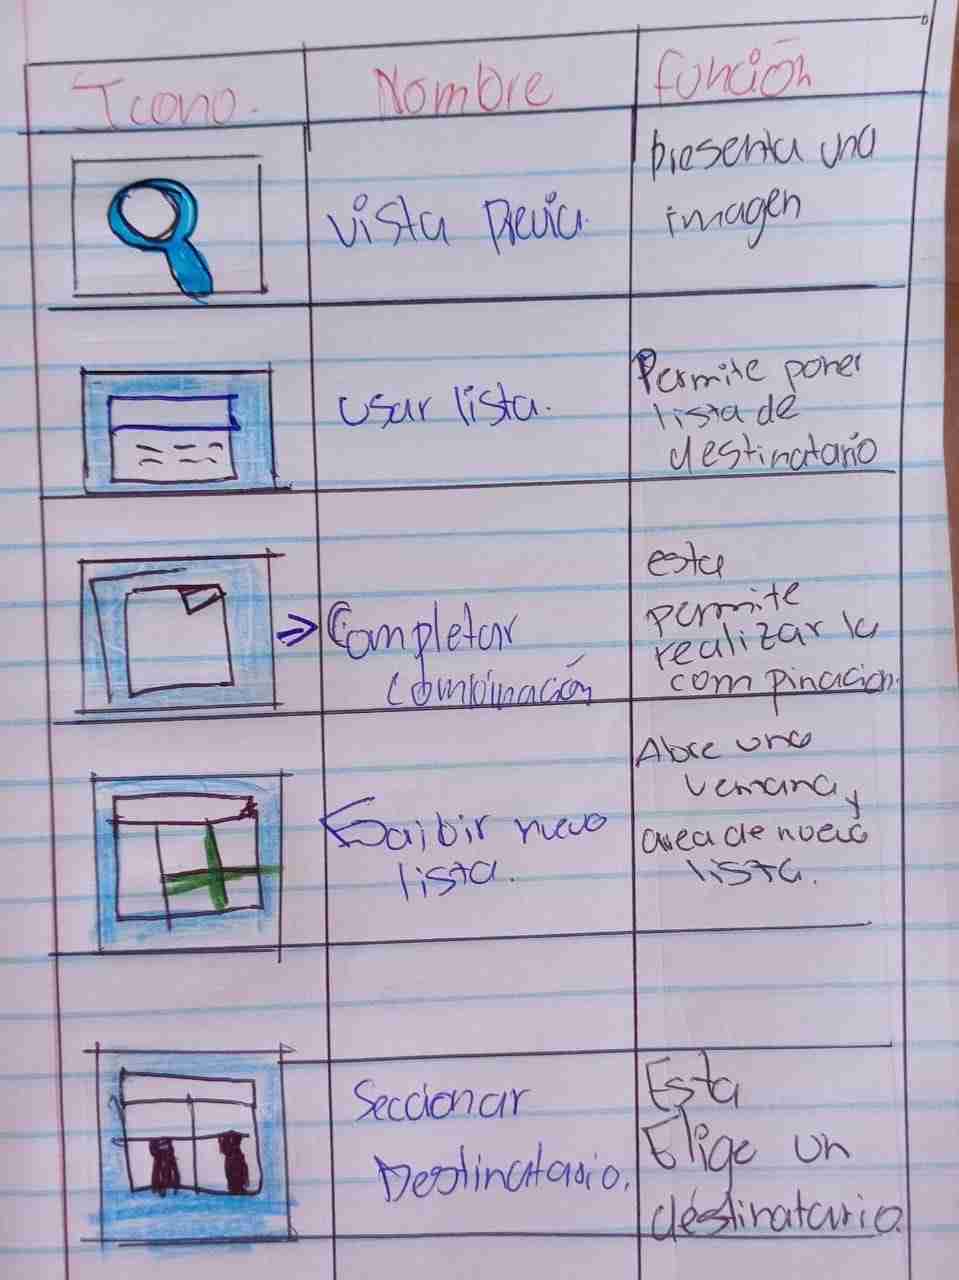 Icono. Nombre función
vista previa.
presenta una
imagen
Usar lista.
Permite poner
lista de
destinatario
Completar
combinación
esta
permite
realizar la
compinacion.
Escibir nueva
lista.
Abre una
vemana y
area de nueva
lista.
Seccionar
Destinatario.
Esta
Elige un
destinatario.